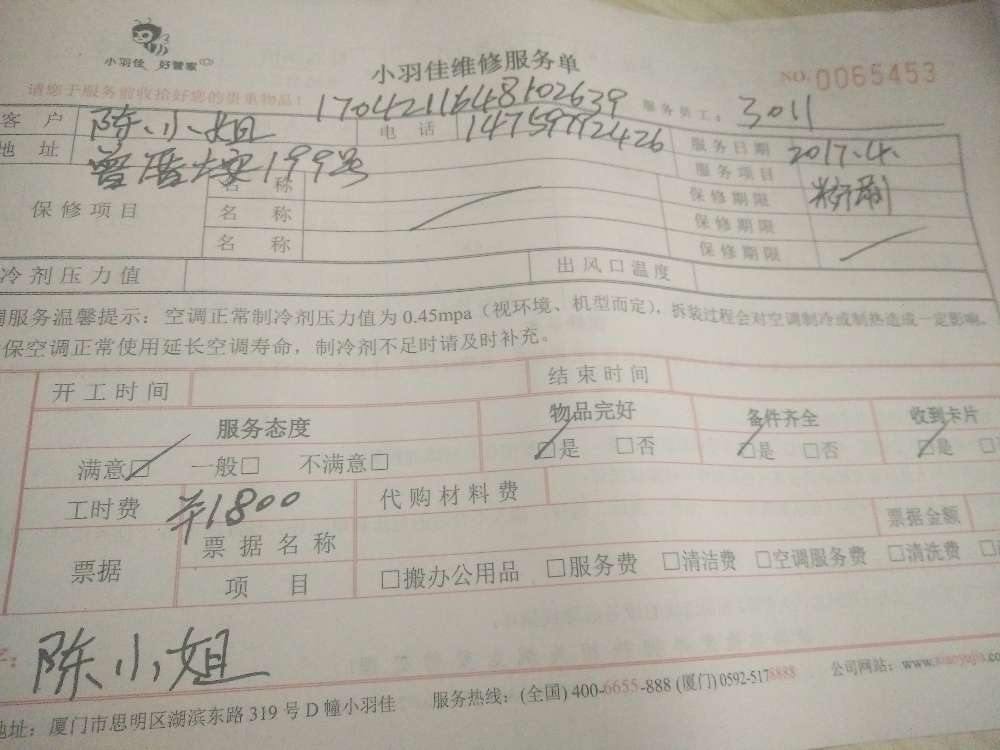 小羽佳 好管家
小羽佳维修服务单
NO.0065453
请您于服务前收拾好您的贵重物品!
1704211648102639
服务员工: 3011
客 户 陈小姐 电 话 14759792426 服务日期 2017.4.
地 址 曾厝垵199号 服务项目
保修项目 名 称 保修期限
名 称 保修期限
名 称 保修期限
冷剂压力值 出风口温度
调服务温馨提示：空调正常制冷剂压力值为 0.45mpa（视环境、机型而定），拆装过程会对空调制冷或制热造成一定影响。
保空调正常使用延长空调寿命，制冷剂不足时请及时补充。
开工时间 结束时间
服务态度 物品完好 备件齐全 收到卡片
满意□ 一般□ 不满意□ □是 □否 □是 □否 □是 □
工时费 ¥1800 代购材料费
票据 票据名称 票据金额
项 目 □搬办公用品 □服务费 □清洁费 □空调服务费 □清洗费 □
字: 陈小姐
地址：厦门市思明区湖滨东路 319 号 D 幢小羽佳 服务热线：(全国) 400-6655-888 (厦门) 0592-5178888 公司网站：www.xiaoyujia.